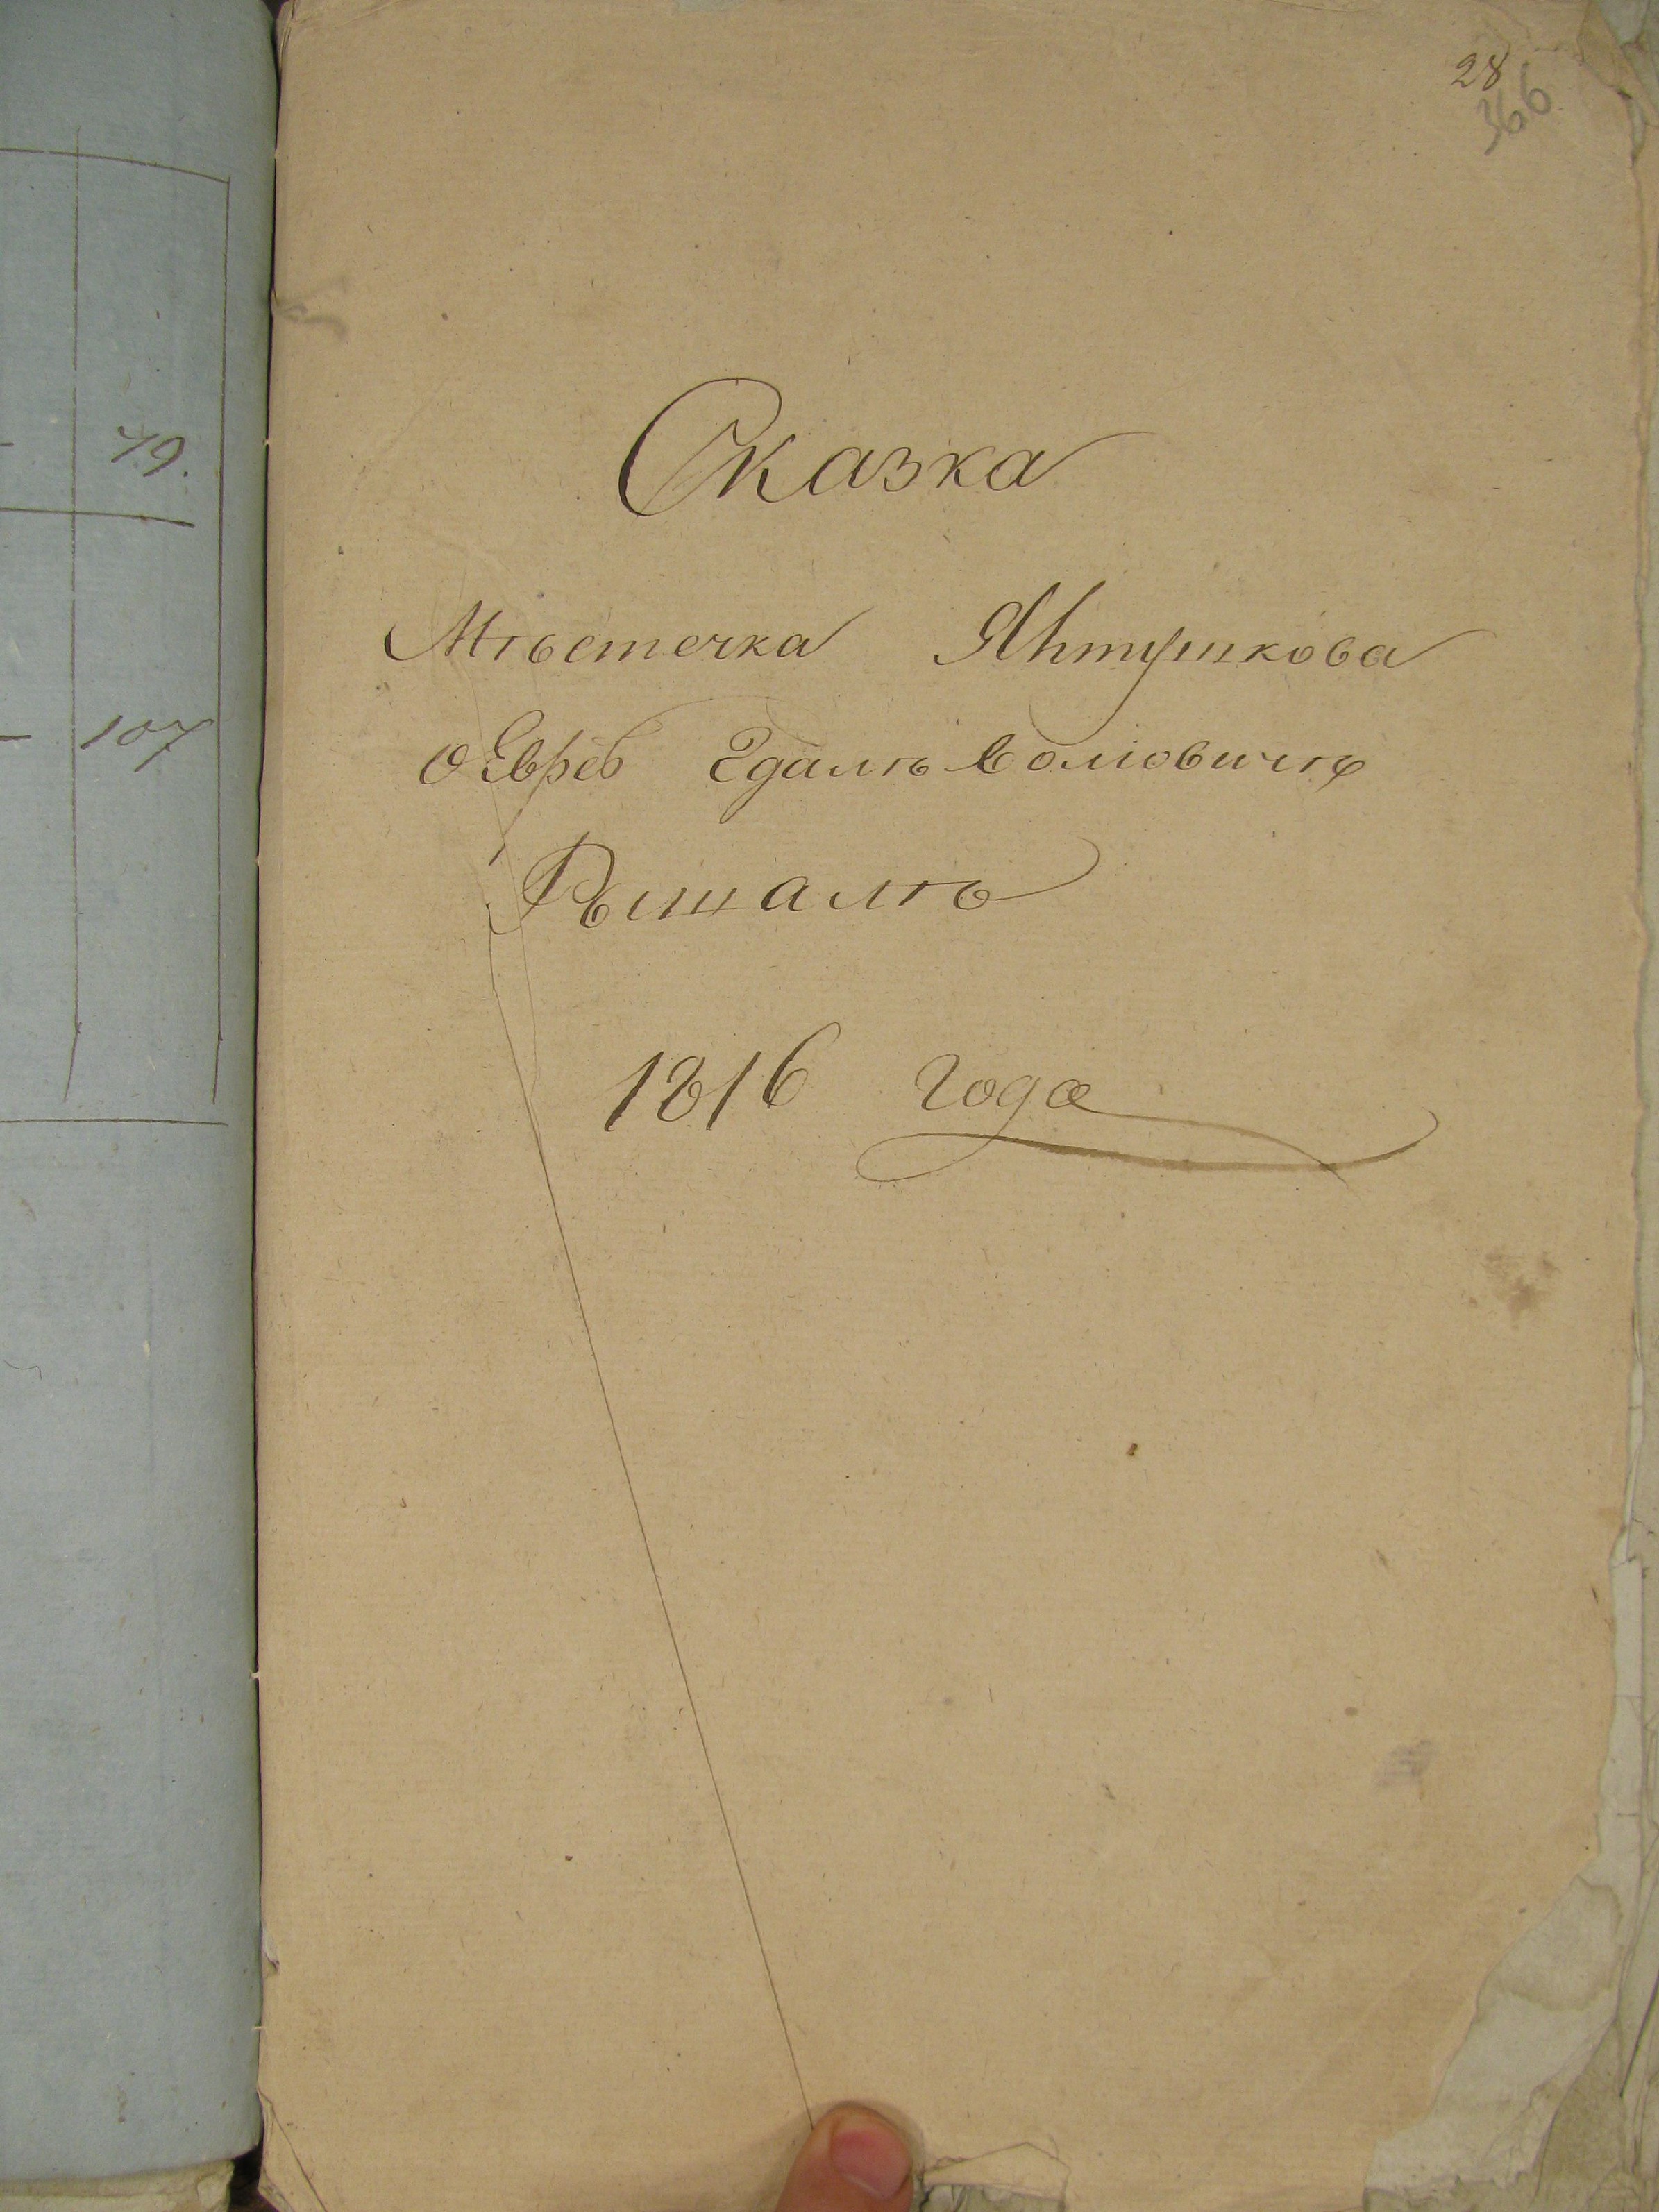 79.
107
28
366
Сказка
Мѣстечка Янтушкова
о Еврѣѣ Гдалѣ Волковичѣ
Рышалѣ
1816 года